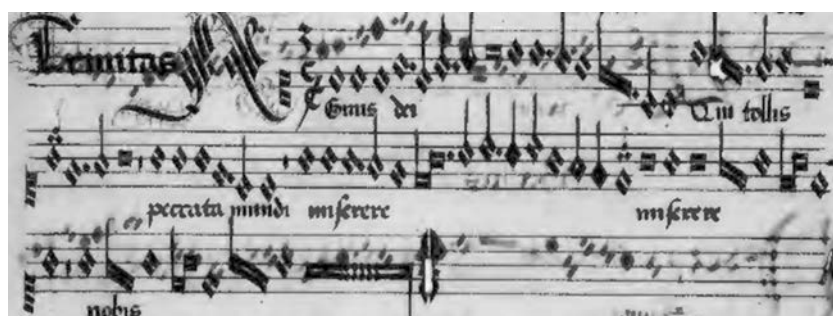 Trinitas A Gnus dei Qui tollis
peccata mundi miserere miserere
nobis